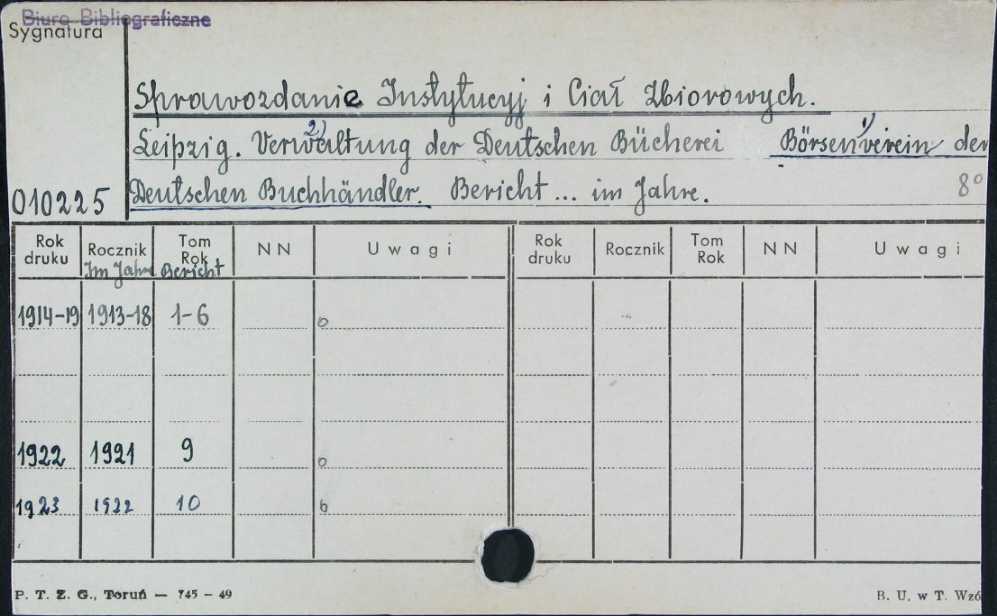 Biuro Bibliograficzne
Sygnatura
Sprawozdanie Instytucyj i Ciał Zbiorowych.
Leipzig. Verwaltung 2) der Deutschen Bücherei Börsenverein 1) der
010225 Deutschen Buchhändler. Bericht... im Jahre. 8°
Rok druku Rocznik Tom Rok NN Uwagi Rok druku Rocznik Tom Rok NN Uwagi
Im Jahre Bericht
1914-19 1913-18 1-6 o
1922 1921 9 o
1923 1922 10 o
P. T. Z. G., Toruń — 745 – 49 B. U. w T. Wzó